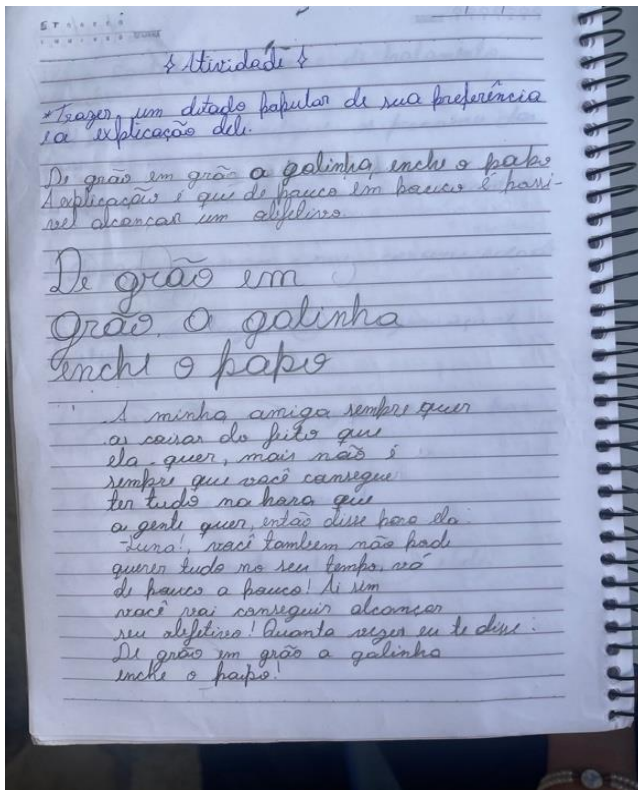 Atividade
*Trazer um ditado popular de sua preferência
e a explicação dele.
De grão em grão a galinha enche o papo
A explicação é que de pouco em pouco é possi-
vel alcançar um objetivo
De grão em
grão, a galinha
enche o papo
A minha amiga sempre quer
as coisas do jeito que
ela quer, mais não é
sempre que você consegue
ter tudo na hora que
a gente quer, então disse para ela:
-Luna!, você tambem não pode
querer tudo no seu tempo, vá
de pouco a pouco! Ai sim
você vai conseguir alcançar
seu objetivo! Quanta vezes eu te disse:
De grão em grão a galinha
enche o papo!